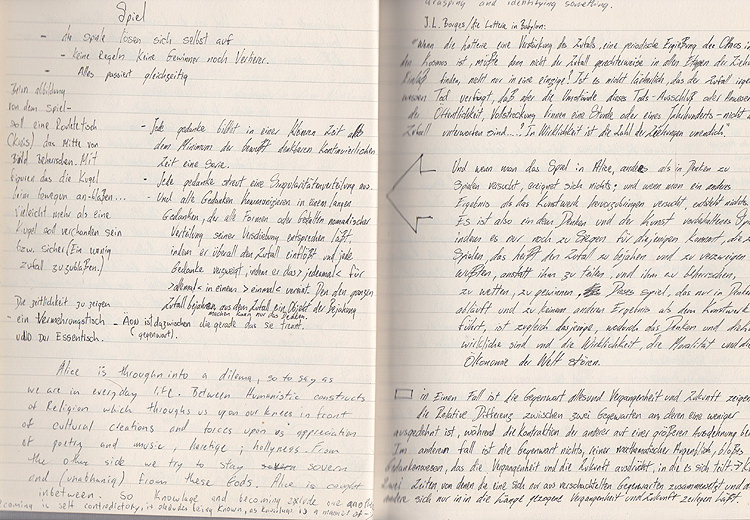 Spiel
- die Spiele lösen sich selbst auf
- keine Regeln keine Gewinner noch Verlierer.
- Alles passiert gleichzeitig
von dem Spiel-
soll eine Rouletetisch
(Kreis) das Mitte von
Bild Beherschen. Mit
figuren das die Kugel
beim bewegen an-blasen...
vieleicht mehr als eine
Kugel soll vorhanden sein
bzw. sicher (Ein wenig
zufall zuzulaßen.)
Die zeitlichkeit zu zeigen
- ein Vermehrungstisch -
und der Essentisch.
- Jede gedanke bildet in einer kleinen Zeit als
dem Minimum der bewußt denkbaren Kontinuierlichen
Zeit eine Serie.
- Jede gedanke streut eine Singularitätenverteilung aus.
- Und alle Gedanken kommunizieren in einem langen
Gedanken, der alle Formen oder Gestalten nomadischer
Verteilung seiner Verschiebung entsprechen läßt,
indem er überall den Zufall einflößt und jede
Gedanke verzweigt, indem er das >jedesmal< für
>allemal< in einem >einmal< vereint. Den den ganzen
Zufall bejahen, aus dem Zufall ein Objekt der Bejahung
machen kann nur das Denken.
Äon ist dazwischen die gerade das sie trent.
(gegenwart).
Alice is through into a dilema, so to say as
we are in everyday life. Between Humanistic constructs
of Religion which throughs us upon our knees in front
of cultural creations and forces upon us appreciation
of poetry and music, heretige; hollyness. From
the other side we try to stay sovern
and (unabhänig) from these Gods. Alice is caught
inbetween. So Knowlage and becoming exclude one another
becoming is self contradictory, in
grasping and identifying something.
J.L. Borges/die Lotterie in Babylon:
"Wenn die Lotterie eine Verstärkung des Zufalls, eine periodische Eingießung des Chaos in
den Kosmos ist, müßte dann nicht der Zufall gerechterweise in allen Etapen der Ziehung
finden, nicht nur in eine einzige? Ist es nicht lächerlich, das der Zufall irgend
wessen Tod verfügt, daß aber die Umstände dieses Tods-Ausschluß oder
der Öffentlichkeit, Vollstreckung binnen eine Stunde oder eines Jahrhunderts - nicht
Zufall unterworfen sind...? In Wirklichkeit ist die Zahl der Ziehungen unendlich."
Und wenn man das Spiel in Alice, anders als in Denken zu
Spielen versucht, ereignet sich nichts; und wenn man ein anders
Ergebnis als das Kunstwerk hervorzubringen versucht, entsteht nichts.
Es ist also ein dem Denken und der Kunst vorbehaltenes Spiel
indem es nur noch zu Siegen für diejenigen kommt, die
Spielen, das heißt den Zufall zu bejahen und zu verzweigen
wußten, anstatt ihn zu teilen, und ihn zu beherschen,
zu wetten, zu gewinnen. Dieses Spiel, das nur in Denken
abläuft und zu keinen anderen Ergebnis als dem Kunstwerk
führt, ist zugleich dasjenige, wodurch das Denken und die
wirkliche sind und die Wirklichkeit, die Moralität und die
Ökonomie der Welt stören.
in Einen Fall ist die Gegenwart alles und Vergangenheit und Zukunft zeigen
die Relative Differenz zwischen zwei Gegenwarten an deren eine weniger
ausgedehnt ist, während die Kontraktion der anderer auf einer größeren Ausdehnung
Im anderen fall ist die Gegenwart nichts, reiner mathematischer Augenblick, bloßes
das die Vergangenheit und die Zukunft ausdrückt, in die es sich teilt →
Zwei Zeiten, von denen die eine sich aus verschachtelten Gegenwarten zusammensetzt und die
andere sich nur in in die Länge gezogene Vergangenheit und Zukunft zerlegen läßt.